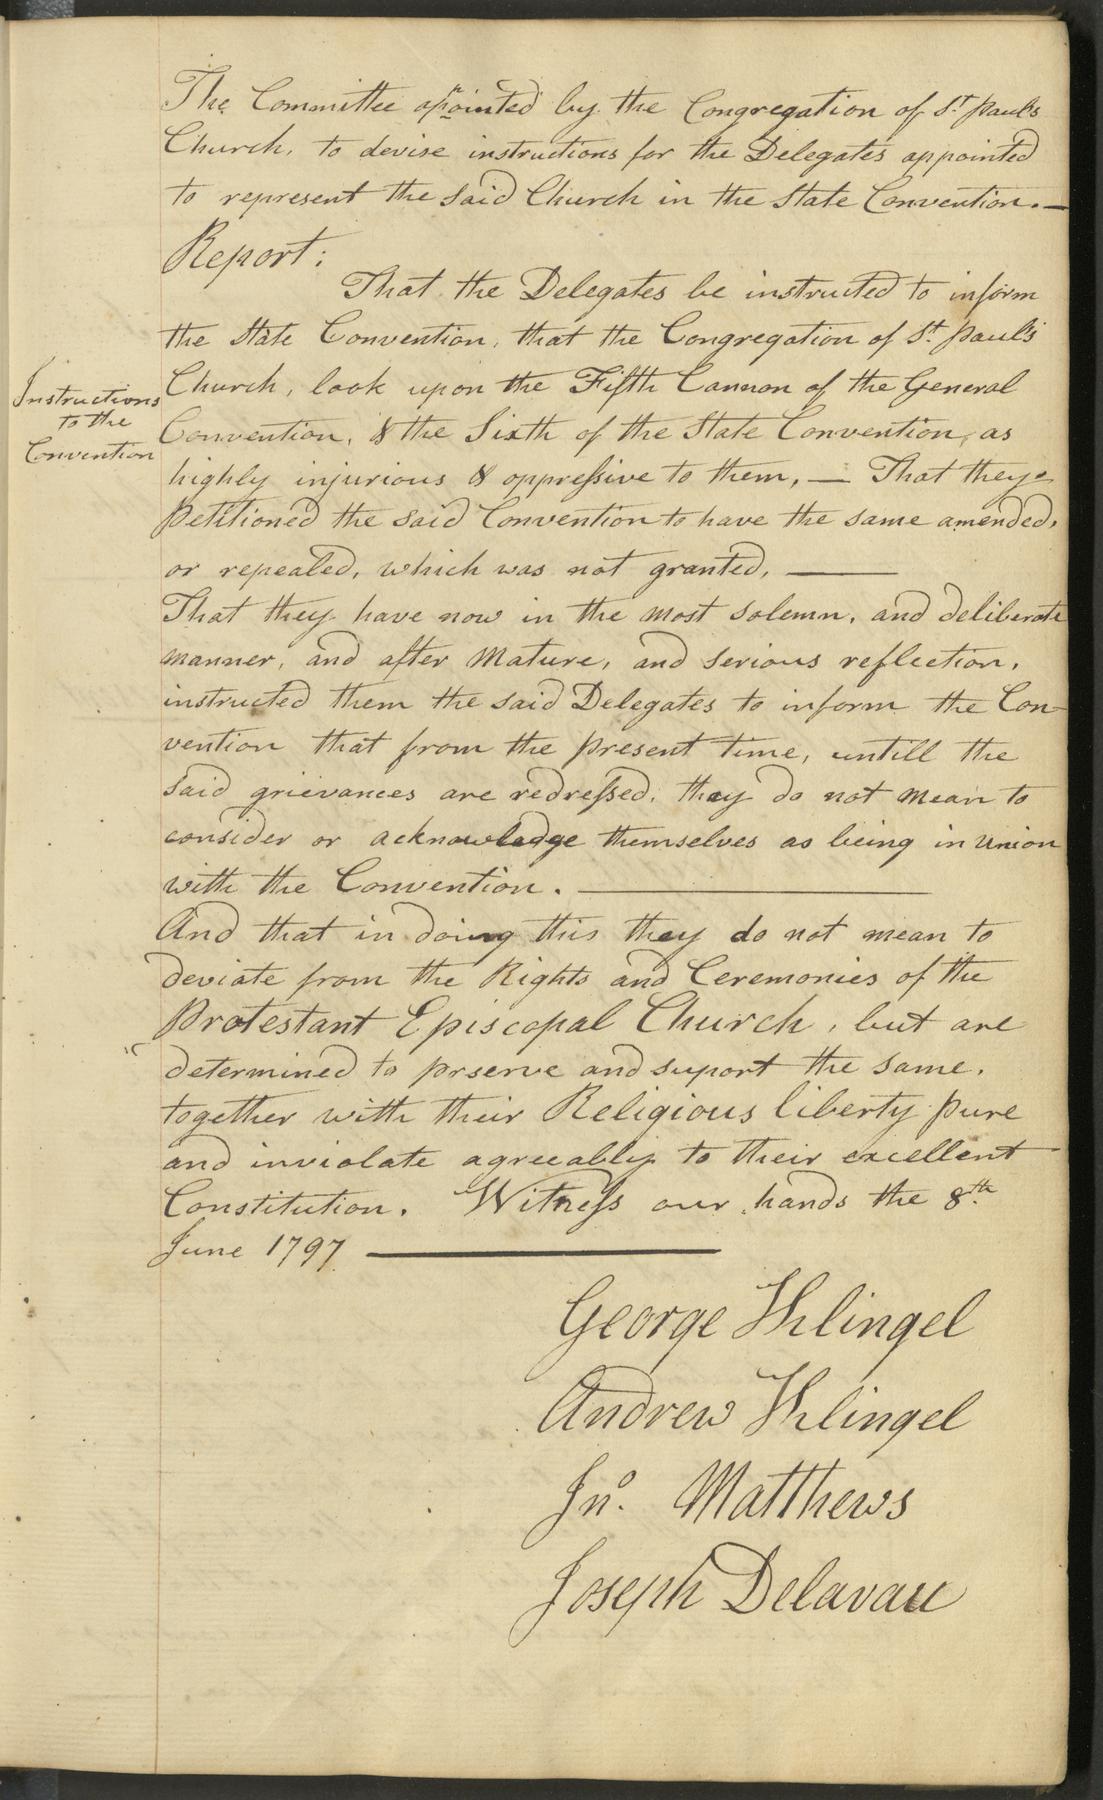 The Committee appointed by the Congregation of St. Paul's
Church, to devise instructions for the Delegates appointed
to represent the said Church in the State Convention. —
Report:
That the Delegates be instructed to inform
the State Convention, that the Congregation of St. Paul's
Church, look upon the Fifth Cannon of the General
Instructions
to the
Convention
Convention, & the Sixth of the State Convention, as
highly injurious & oppressive to them, — That they
Petitioned the said Convention to have the same amended,
or repealed, which was not granted, —
That they have now in the most solemn, and deliberate
manner, and after Mature, and serious reflection,
instructed them the said Delegates to inform the Con-
vention that from the present time, untill the
said grievances are redressed, they do not mean to
consider or acknowledge themselves as being in Union
with the Convention. —
And that in doing this they do not mean to
deviate from the Rights and Ceremonies of the
Protestant Episcopal Church, but are
determined to prserve and suport the same,
together with their Religious liberty pure
and inviolate agreeably to their excellent
Constitution. Witness our hands the 8th
June 1797 —
George Klingel
Andrew Klingel
Jno. Matthews
Joseph Delavau